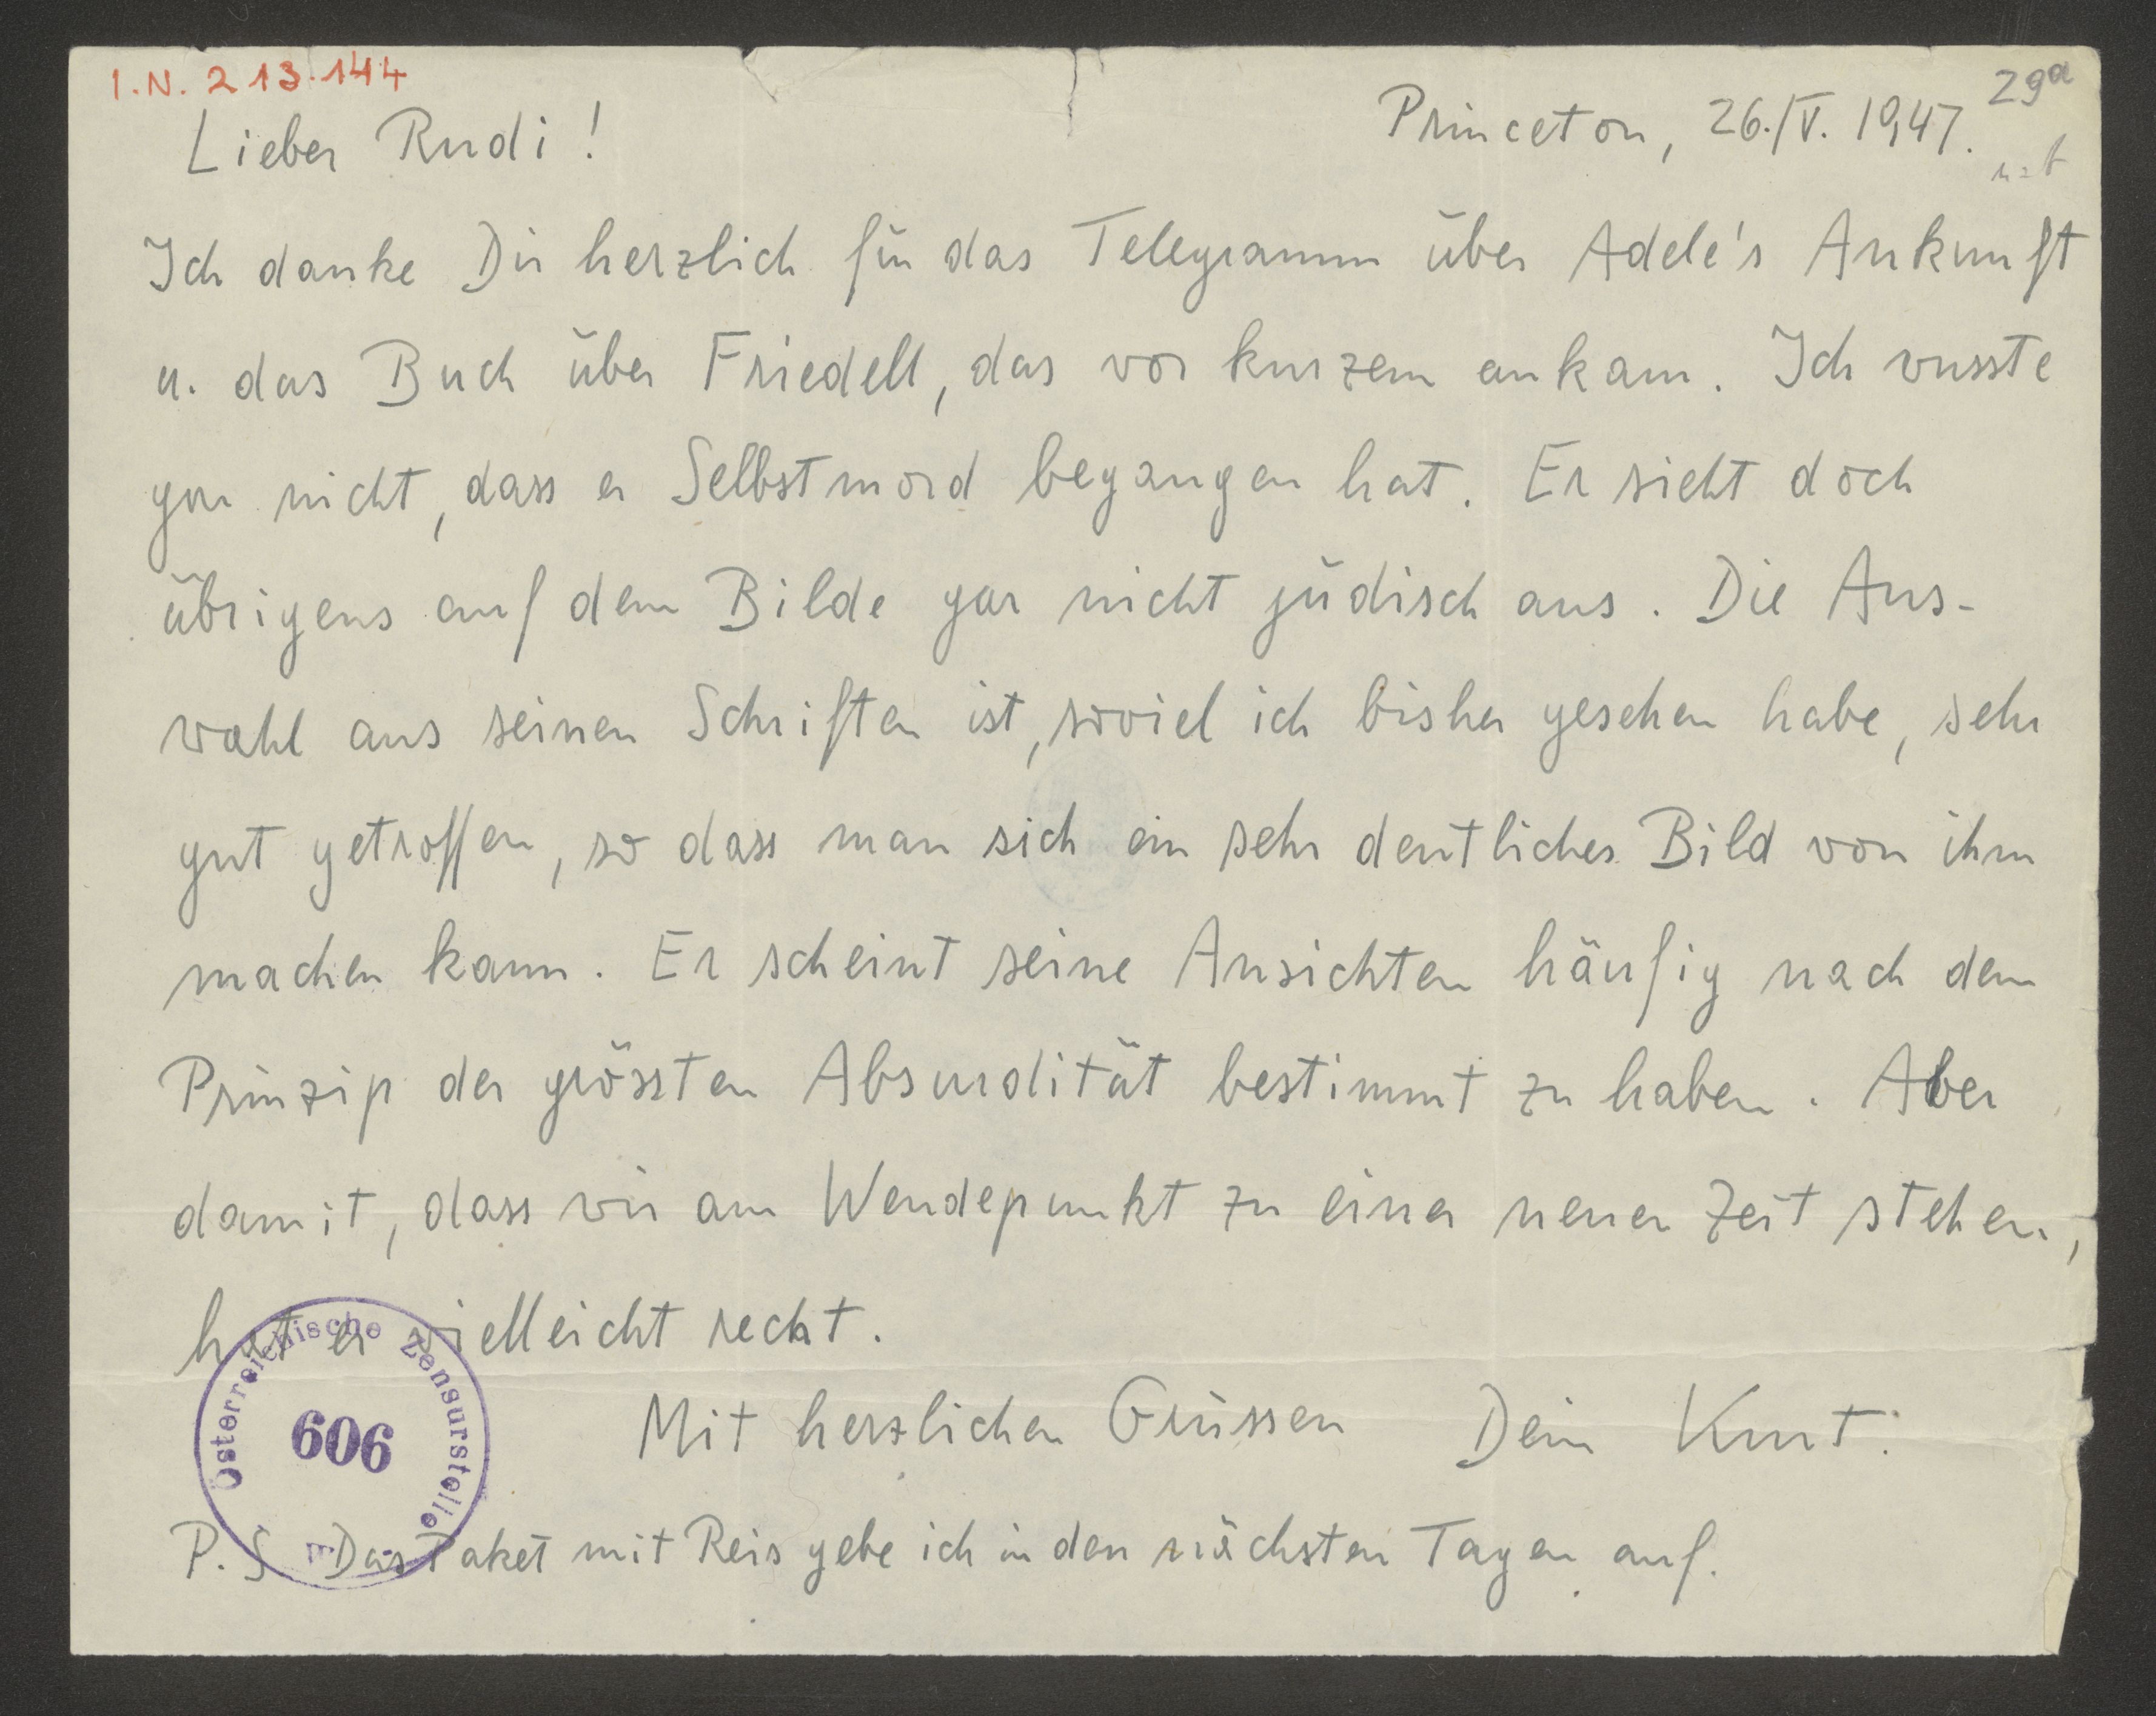 I.N. 213.144
29a
Lieber Rudi!
Princeton, 26./V. 1947.
Ich danke Dir herzlich für das Telegramm über Adele's Ankunft
u. das Buch über Friedell, das vor kurzem ankam. Ich wusste
gar nicht, dass er Selbstmord begangen hat. Er sieht doch
übrigens auf dem Bilde gar nicht jüdisch aus. Die Aus-
wahl aus seinen Schriften ist, soviel ich bisher gesehen habe, sehr
gut getroffen, so dass man sich ein sehr deutliches Bild von ihm
machen kann. Er scheint seine Ansichten häufig nach dem
Prinzip der grössten Absurdität bestimmt zu haben. Aber
damit, dass wir am Wendepunkt zu einer neuen Zeit stehen,
hat er vielleicht recht.
Mit herzlichen Grüssen Dein Kurt.
P.S. Das Paket mit Reis gebe ich in den nächsten Tagen auf.
Österreichische Zensurstelle
606